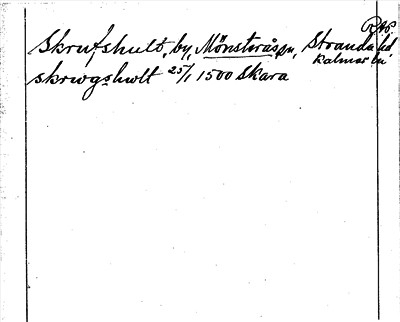 RAP
Skrufshult, by, Mönsterås sn, Stranda hd
Kalmar län
skrwgshwlt 25/1 1500 Skara